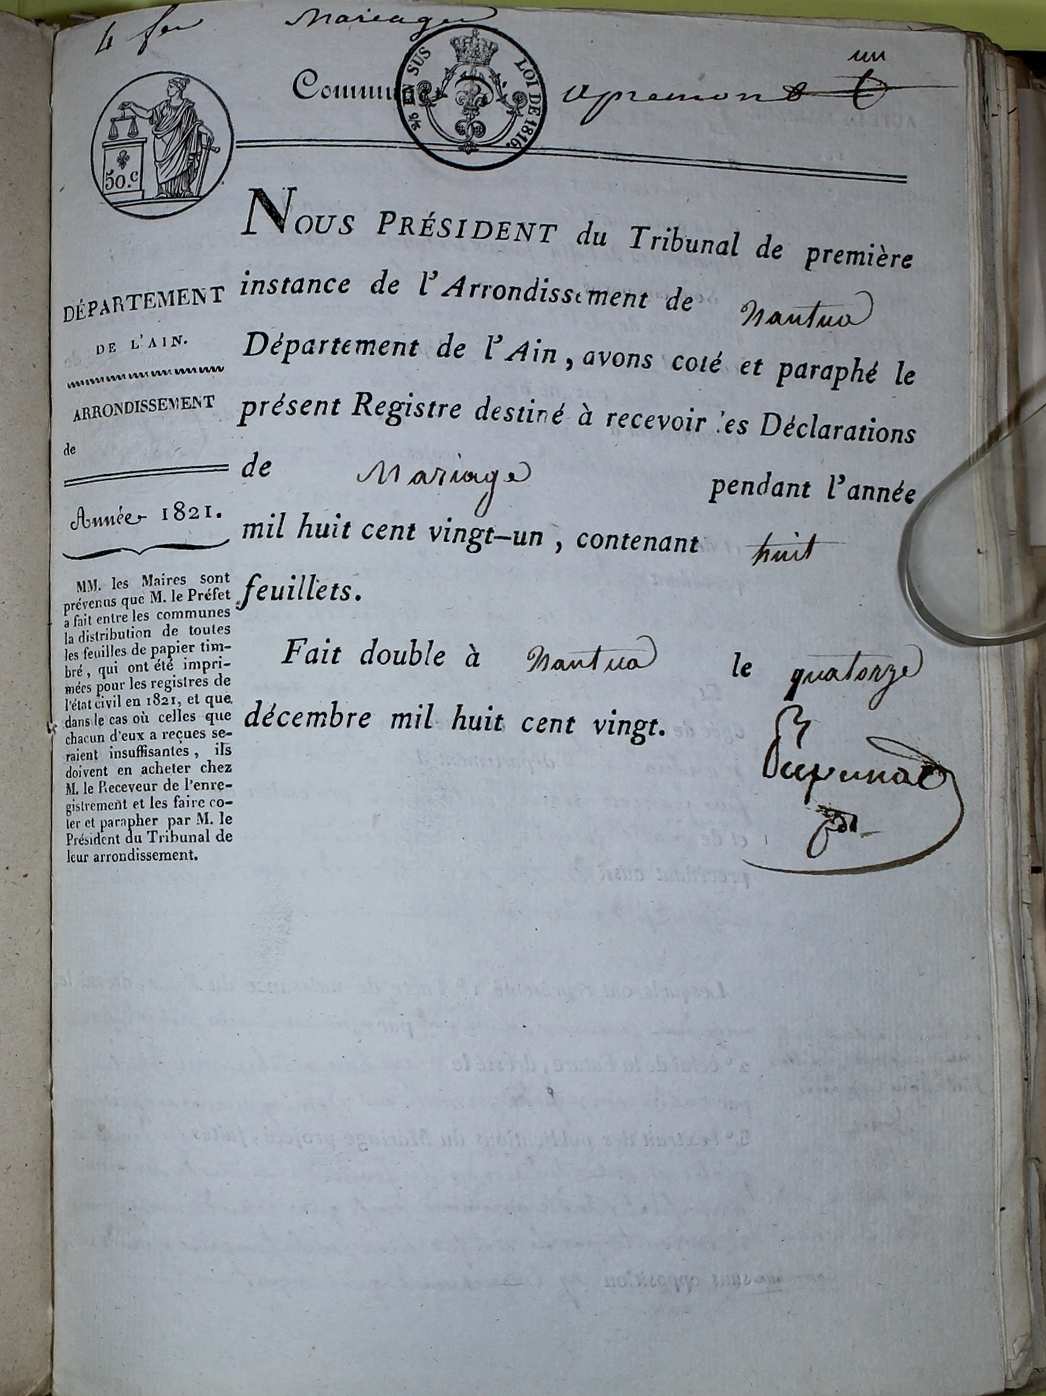 4 fe
Mariages
un
Commune Apremont
2/5 EN SUS LOI DE 1816.
50.c
NOUS PRÉSIDENT du Tribunal de première
instance de l'Arrondissement de Nantua
Département de l'Ain, avons coté et paraphé le
présent Registre destiné à recevoir les Déclarations
de Mariage pendant l'année
mil huit cent vingt-un, contenant huit
feuillets.
Fait double à Nantua le quatorze
décembre mil huit cent vingt.
DÉPARTEMENT
DE L'AIN.
ARRONDISSEMENT
de
Année 1821.
MM. les Maires sont
prévenus que M. le Préfet
a fait entre les communes
la distribution de toutes
les feuilles de papier tim-
bré, qui ont été impri-
mées pour les registres de
l'état civil en 1821, et que
dans le cas où celles que
chacun d'eux a reçues se-
raient insuffisantes, ils
doivent en acheter chez
M. le Receveur de l'enre-
gistrement et les faire co-
ter et parapher par M. le
Président du Tribunal de
leur arrondissement.